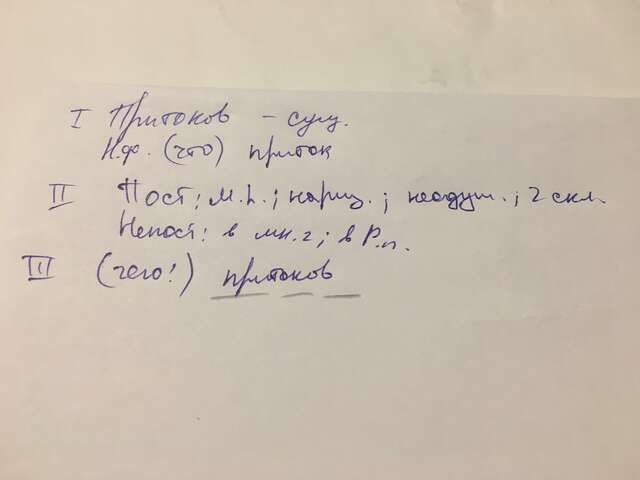 I Притоков – сущ.
Н.ф. (что) приток
II Пост: м.р.; нариц.; неодуш.; 2 скл.
Непост: в мн.ч; в Р.п.
III (чего?) притоков